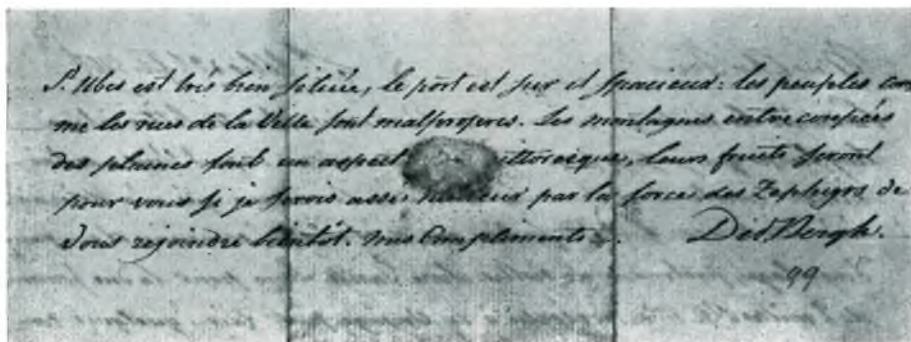 S. Ubes est très bien sitüée, le port est sur et spacieux: les peuples com
me les rues de la Ville sont malpropres. Les montagnes entrecoupées
des plaines font un aspect ittoresque, leurs fruits seront
pour vous si je serois assés heureux par la force des Zephyrs de
Vous rejoindre bientôt. mes Compliments
99